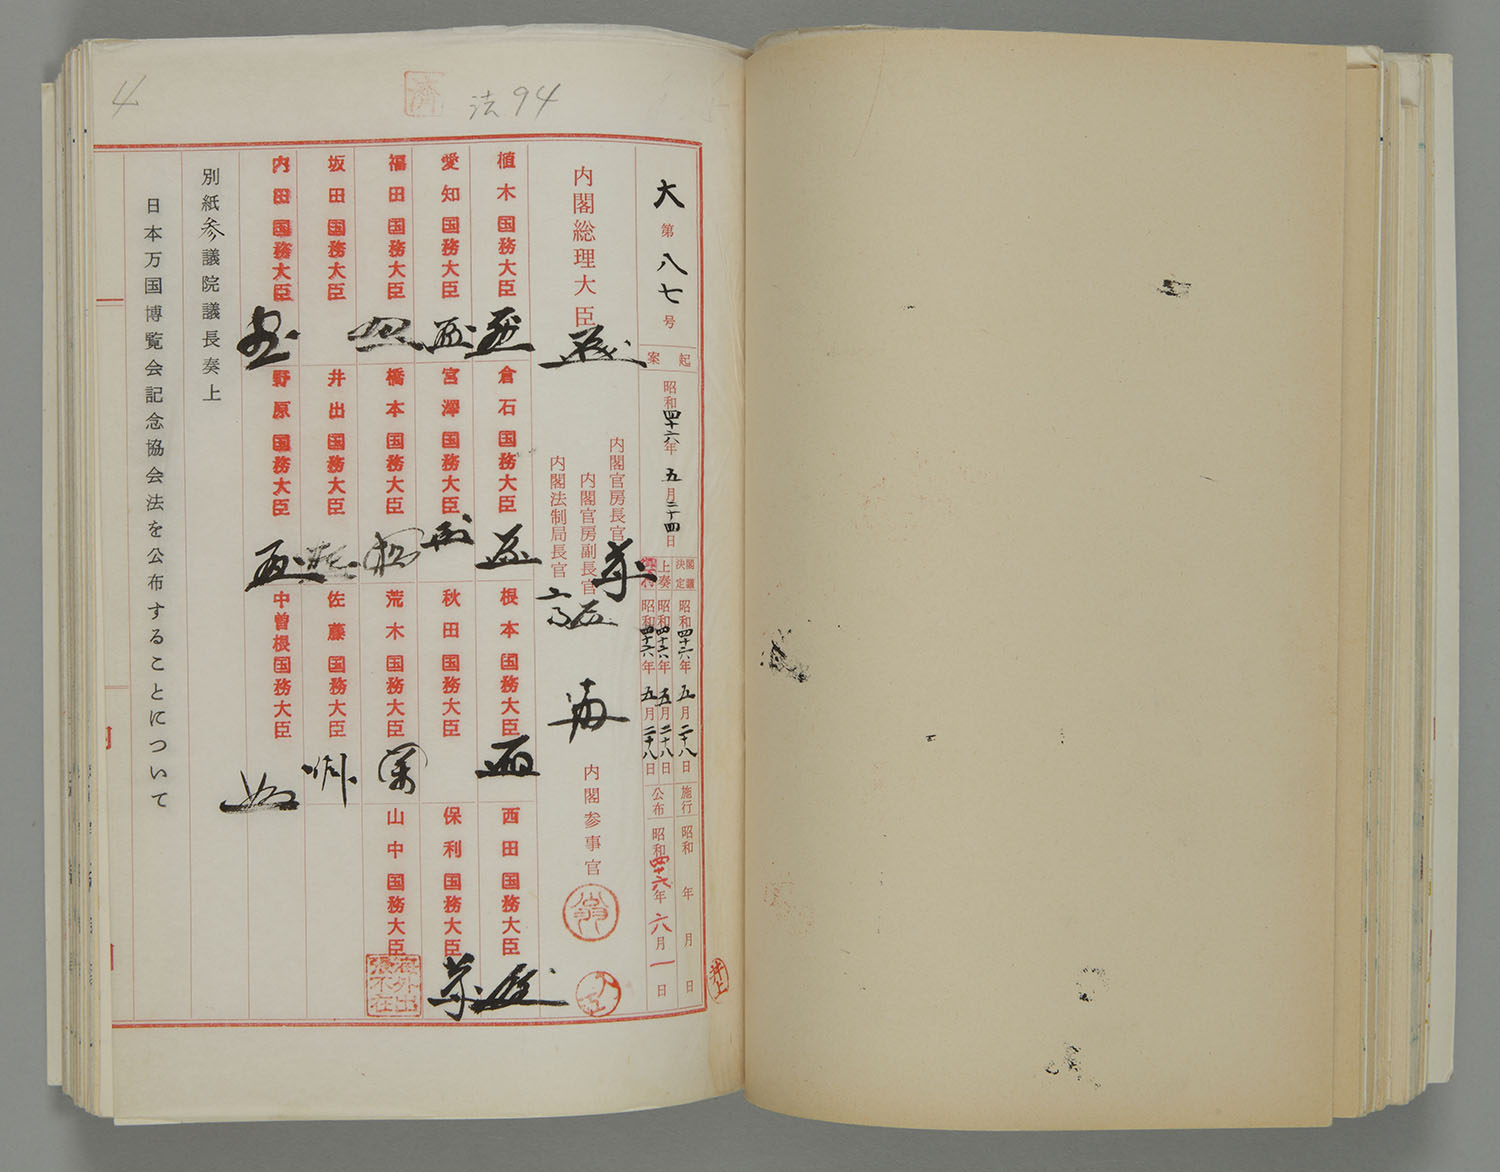 4
済
法94
大第八七号
起案
昭和四十六年五月二十四日
閣議決定
昭和四十六年五月二十八日
上奏
昭和四十六年五月二十八日
昭和四十六年五月二十八日
施行
昭和 年 月 日
公布
昭和四十六年六月一日
井上
内閣総理大臣
内閣官房長官
内閣官房副長官
内閣法制局長官
内閣参事官
植木国務大臣
倉石国務大臣
根本国務大臣
西田国務大臣
愛知国務大臣
宮澤国務大臣
秋田国務大臣
保利国務大臣
福田国務大臣
橋本国務大臣
荒木国務大臣
山中国務大臣
海外出張不在
坂田国務大臣
井出国務大臣
佐藤国務大臣
内田国務大臣
野原国務大臣
中曽根国務大臣
別紙参議院議長奏上
日本万国博覧会記念協会法を公布することについて